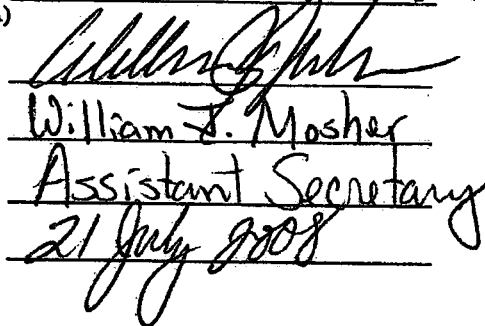 William J. Mosher
Assistant Secretary
21 July 2008